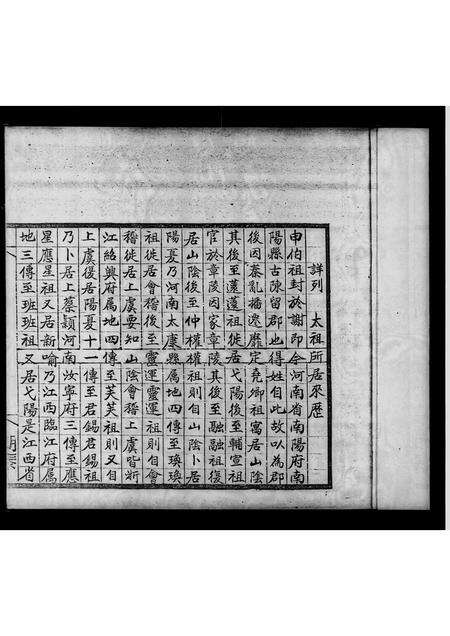 詳列 太祖所居來歷
申伯祖封於謝即今河南省南陽府南
陽縣古陳留郡也得姓自此故以為郡
後因秦亂播遷靡定堯卿祖寓居山陰
其後至蓮蓮祖徙居弋陽後至輔宣祖
官於章陵因家章陵其後至融融祖復
居山陰後至仲權權祖則自山陰卜居
陽夏乃河南太康縣属地四傳至瑍瑍
祖徙居會稽後至靈運靈運祖則自會
稽徙居上虞要知山陰會稽上虞皆浙
江紹興府属地四傳至芙芙祖則又自
上虞復居陽夏十一傳至君錫君錫祖
乃卜居上蔡頴河南汝寧府三傳至應
星應星祖又居新喻乃江西臨江府属
地三傳至班班祖又居弋陽是江西省